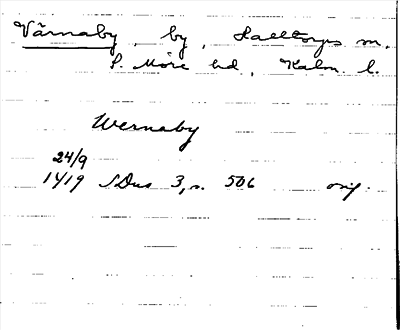 Värnaby, by, Halltorps m.
S. Möre hd, Kalm. l.
Wernaby
24/9
1419 SDns 3, s. 506 orig.